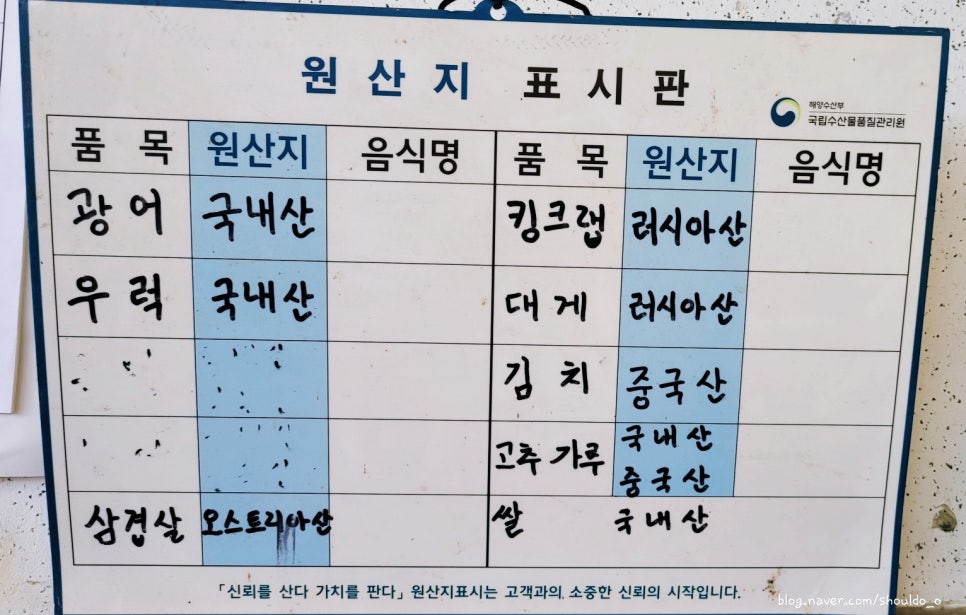 원산지 표시판
해양수산부
국립수산물품질관리원
품 목 원산지 음식명 품 목 원산지 음식명
광어 국내산 킹크랩 러시아산
우럭 국내산 대게 러시아산
김치 중국산
고추가루 국내산
중국산
삼겹살 오스트리아산 쌀 국내산
「신뢰를 산다 가치를 판다」 원산지표시는 고객과의 소중한 신뢰의 시작입니다.
blog.naver.com/shouldo_o